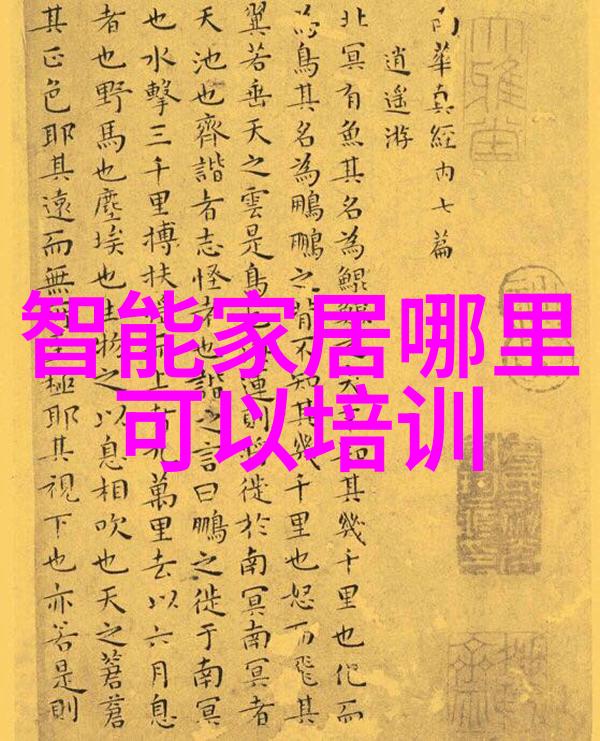 智能家居哪里
可以培训
南華真經內七篇
逍遙游
北冥有魚其名為鯤鯤之大不知其幾千里也化而
為鳥其名為鵬鵬之背不知其幾千里也怒而飛其
翼若垂天之雲是鳥也運則將徙於南冥南冥者
天池也齊諧者志怪者也諧之言曰鵬之徙于南冥
也水擊三千里摶扶搖而上者九萬里去以六月息
者也野馬也塵埃也生物之以息相吹也天之蒼蒼
其正色耶其遠而無至極耶其視下也亦若是則
大雅堂